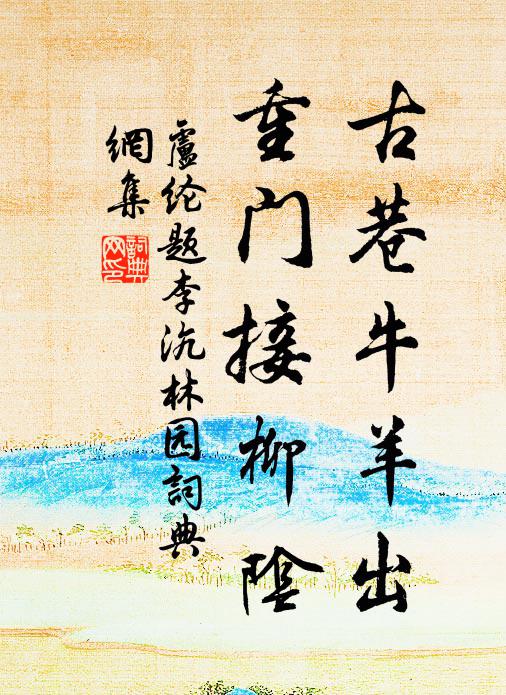 古巷牛羊出
重门接柳阴
盧纶题李沆林园詞典
網集
詞典
网印